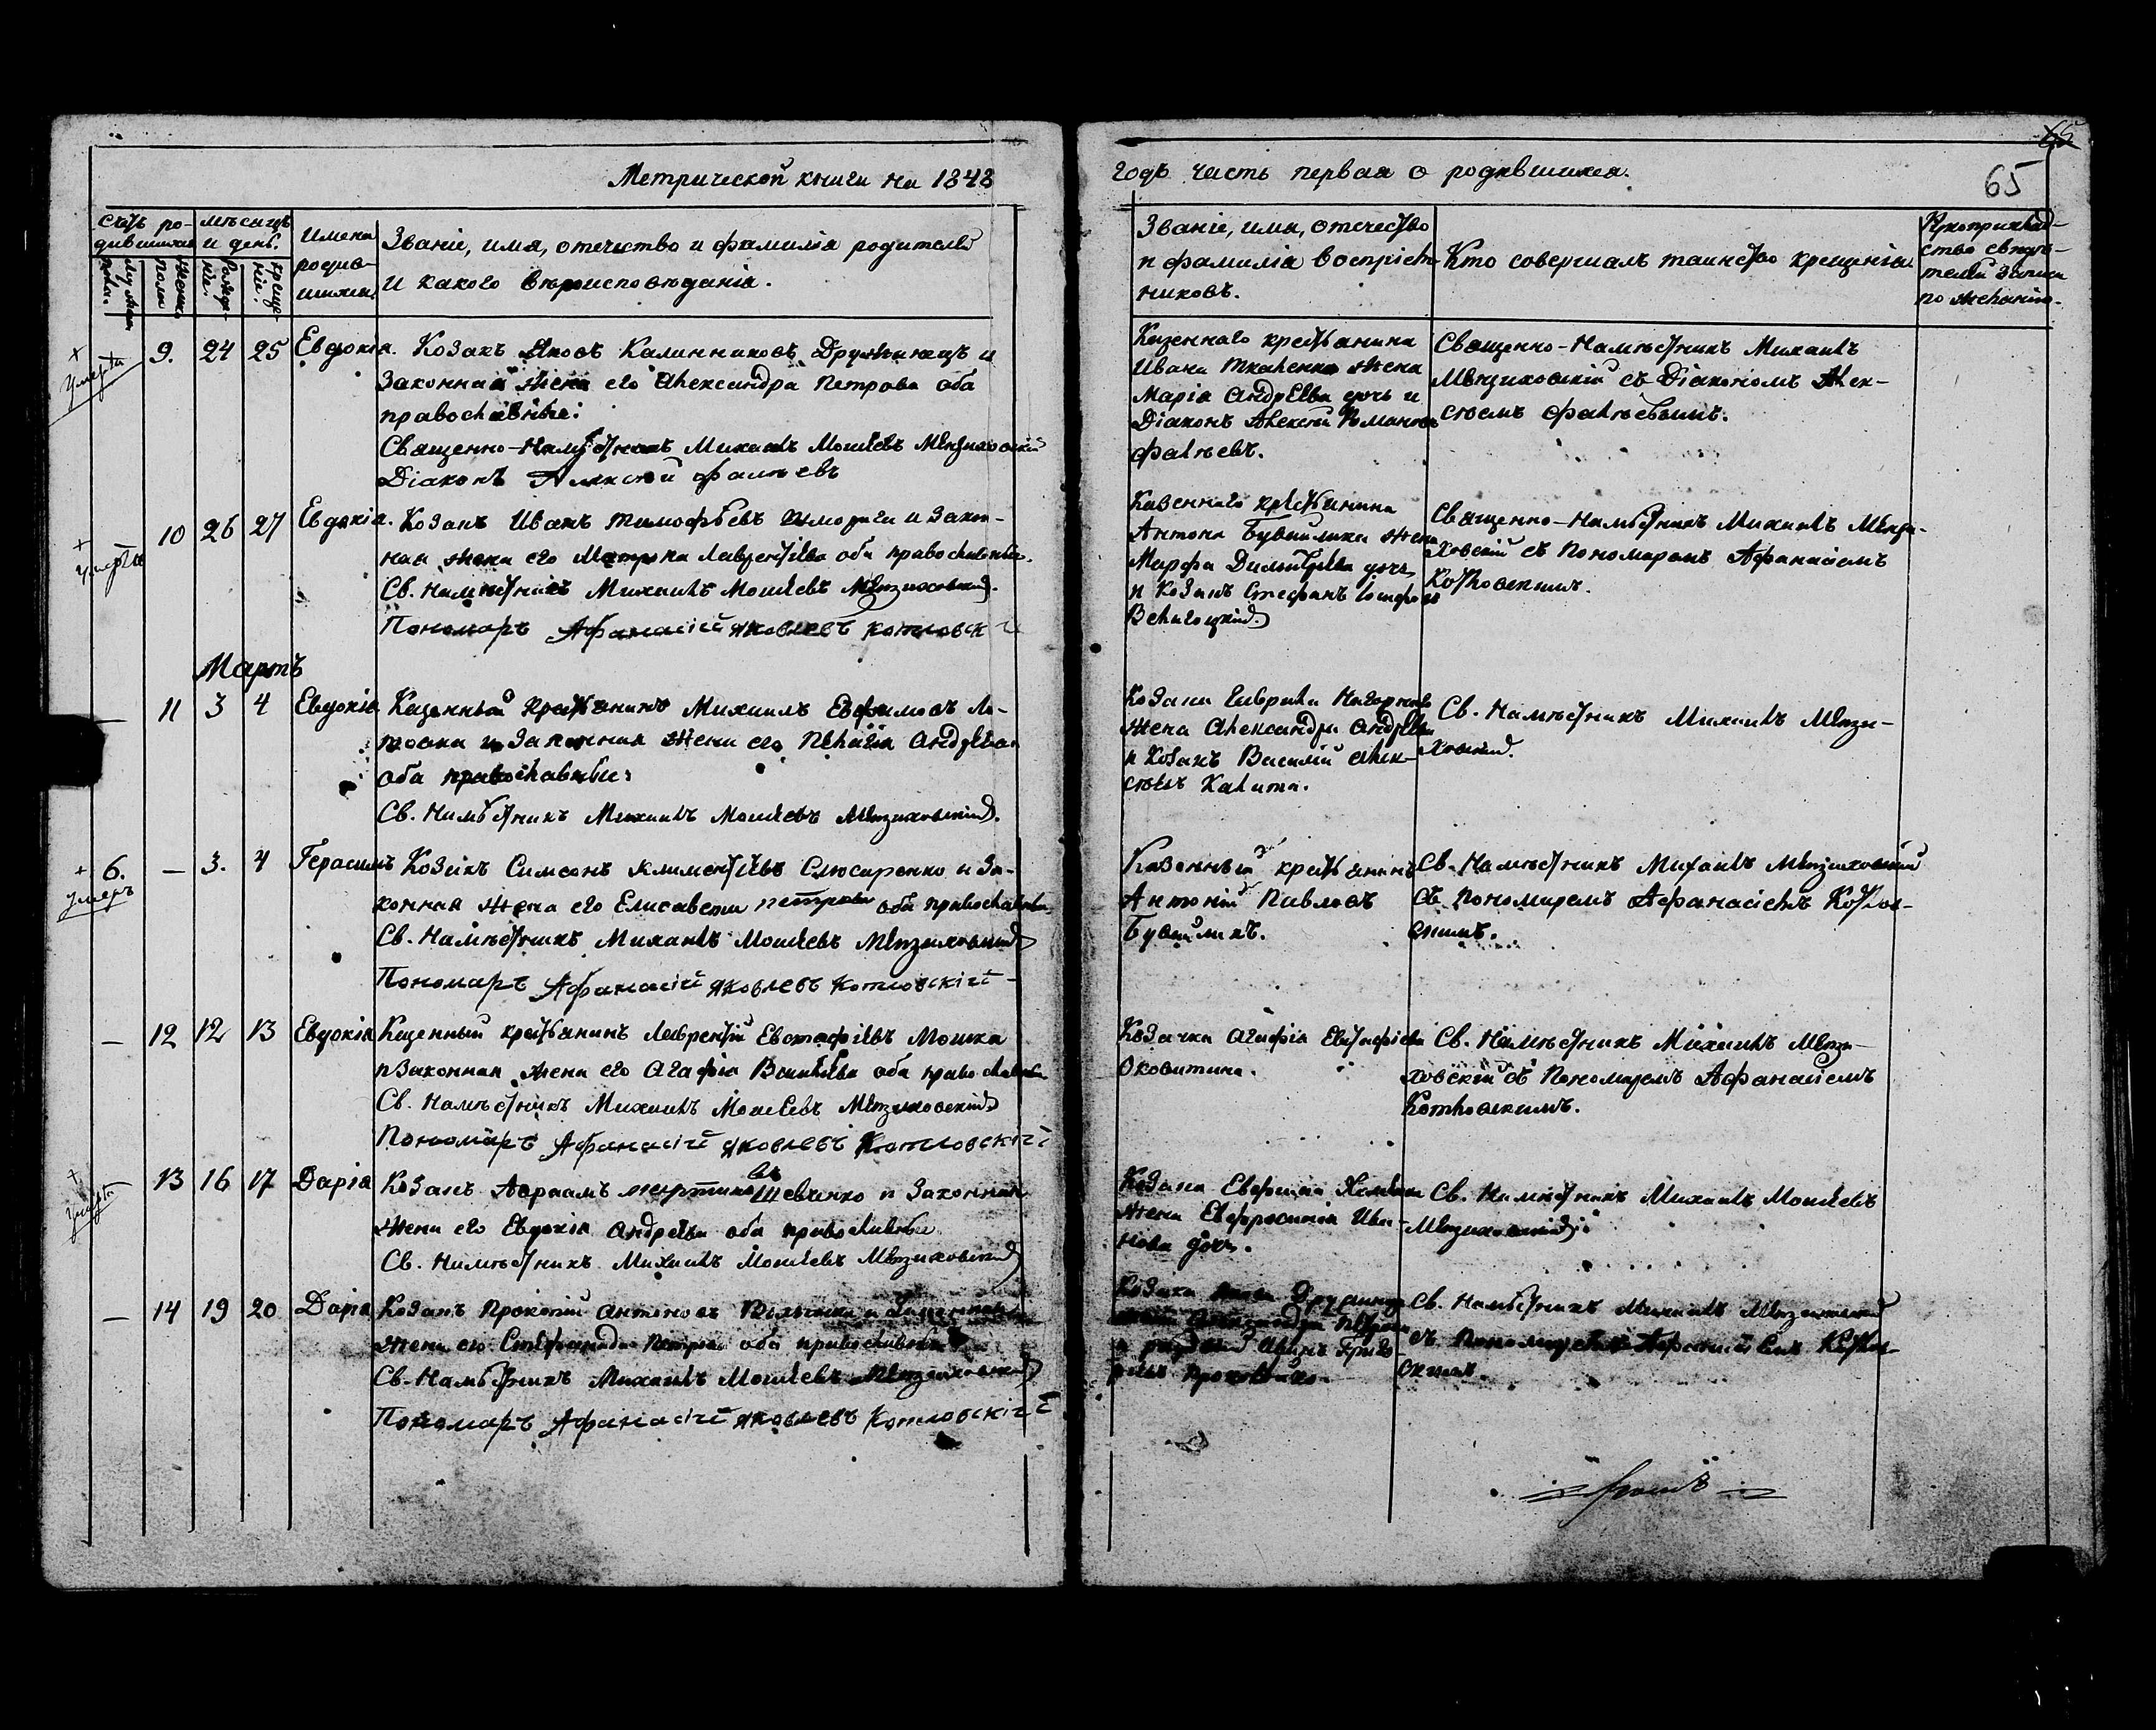 65
Метрической книги на 1848
годъ часть первая о родившихся.
65
Счетъ ро-
дившихся
мѣсяцъ
и день.
Имена
родив-
шихся
Званіе, имя, отечество и фамилія родителей
и какого вѣроисповѣданія.
мужеска
пола.
женска
пола
Рожде-
нія.
Креще-
нія.
Званіе, имя, отечество
и фамилія воспріем-
никовъ.
Кто совершалъ таинство крещенія.
Рукоприклад-
ство свидѣ-
телей записи
по желанію.
+
умерла
9. 24 25 Евдокія. Козакъ Яковъ Калинниковъ Дружинецъ и
законная жена его Александра Петрова оба
православные:
Священно-Намѣстникъ Михаилъ Моисеевъ Мензиховскій
Діаконъ Алексѣй Фалѣевъ
Казеннаго крестьянина
Ивана Ткаченка жена
Марія Андреева дочь и
Діаконъ Алексѣй Романовъ
Фалѣевъ.
Священно-Намѣстникъ Михаилъ
Мензиховскій съ Діакономъ Алек-
сѣемъ Фалѣевымъ.
+
умерла
10 26 27 Евдокія. Козакъ Иванъ Тимофѣевъ и закон-
ная жена его Матрона Лаврентіева оба православные.
Св. Намѣстникъ Михаилъ Моисеевъ Мензиховскій.
Пономарь Афанасій Яковлевъ Котловскій
Казеннаго крестьянина
Антона Бувайлика жена
Марфа Димитріева дочь
и Козакъ Стефанъ Іосифовъ
Священно-Намѣстникъ Михаилъ Мензи-
ховскій съ Пономаремъ Афанасіемъ
Котловскимъ.
Мартъ
— 11 3 4 Евдокія Казенный крестьянинъ Михаилъ Евфимовъ
и законная жена его Пелагія Андреева
оба православные:
Св. Намѣстникъ Михаилъ Моисеевъ Мензиховскій.
Козака Гаврила
жена Александра Андреева
и Козакъ Василій Алек-
сѣевъ Калита.
Св. Намѣстникъ Михаилъ Мензи-
ховскій.
+
умеръ
6. — 3. 4 Герасимъ Козакъ Симеонъ Климентіевъ Слюсаренко и за-
конная жена его Елисавета Петрова оба православные
Св. Намѣстникъ Михаилъ Моисеевъ Мензиховскій
Пономарь Афанасій Яковлевъ Котловскій
Казенный крестьянинъ
Антоній Павловъ
Бувайликъ.
Св. Намѣстникъ Михаилъ Мензиховскій
съ Пономаремъ Афанасіемъ Котлов-
скимъ.
— 12 12 13 Евдокія Казенный крестьянинъ Лаврентій Евстафіевъ Мошка
и законная жена его Агафія Васильева оба православные
Св. Намѣстникъ Михаилъ Моисеевъ Мензиховскій
Пономарь Афанасій Яковлевъ Котловскій
Козачка Агафія Евстафіева
Оковитина.
Св. Намѣстникъ Михаилъ Мензи-
ховскій съ Пономаремъ Афанасіемъ
Котловскимъ.
+
умерла
— 13 16 17 Дарія Козакъ Авраамъ Мартиновъ Шевченко и законная
жена его Евдокія Андреева оба православные
Св. Намѣстникъ Михаилъ Моисеевъ Мензиховскій
Козака Евфимія
жена Евфросинія Ива-
нова дочь.
Св. Намѣстникъ Михаилъ Моисеевъ
Мензиховскій
— 14 19 20 Дарія Козакъ Прокопій Антоновъ и законная
жена его Стефанида Петрова оба православные
Св. Намѣстникъ Михаилъ Моисеевъ Мензиховскій
Пономарь Афанасій Яковлевъ Котловскій
Козака
Александра Петрова
и
Св. Намѣстникъ Михаилъ Мензиховскій
съ Пономаремъ Афанасіемъ Котлов-
скимъ.